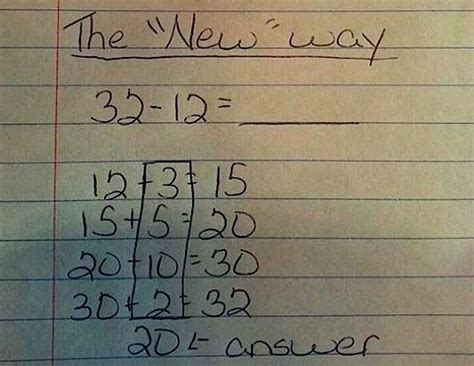 The "New" way
32-12=______
12+3=15
15+5=20
20+10=30
30+2=32
20 ← answer